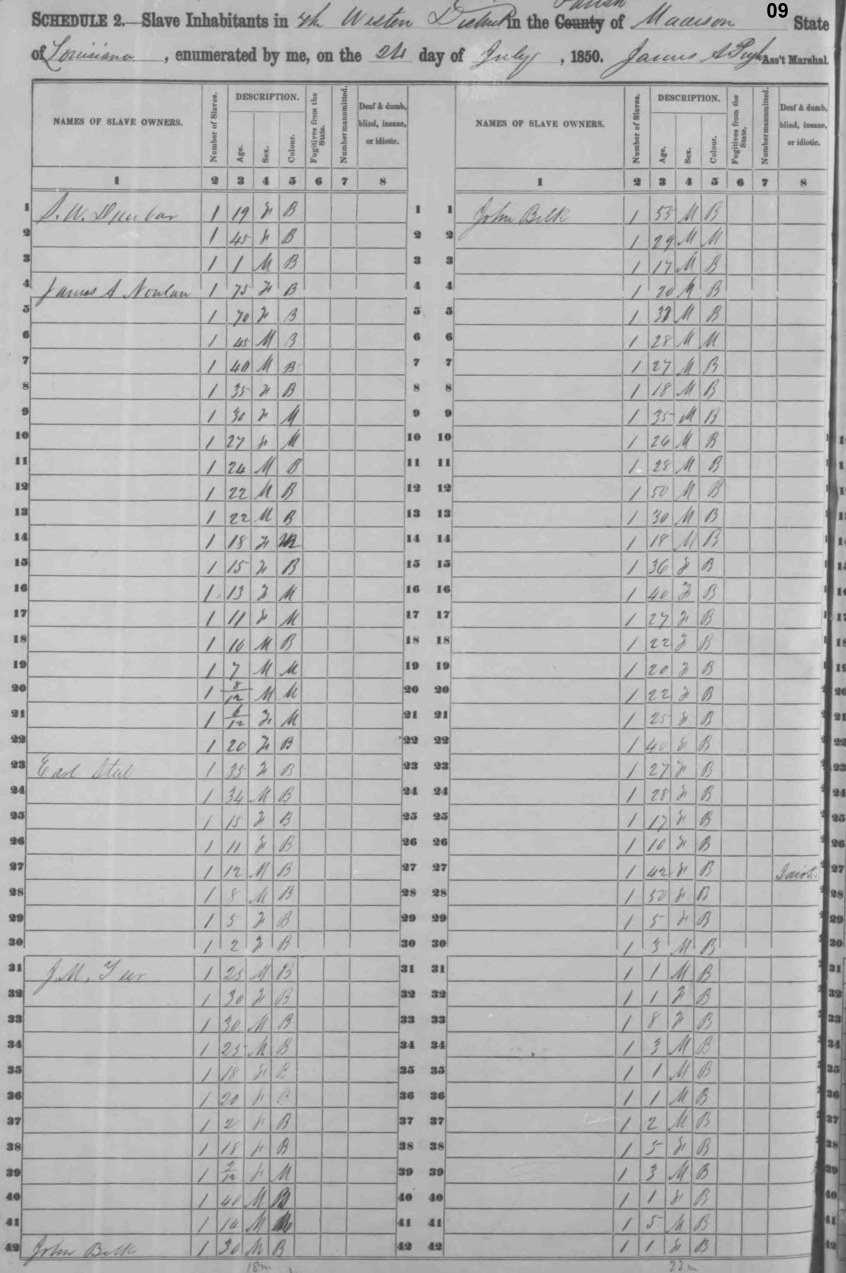 09
SCHEDULE 2.—Slave Inhabitants in 4th Western District in the County Parish of Madison State
of Louisiana, enumerated by me, on the 24 day of July, 1850. James S Ass't Marshal.
NAMES OF SLAVE OWNERS. Number of Slaves. DESCRIPTION. Age. Sex. Colour. Fugitives from the State. Number manumitted. Deaf & dumb, blind, insane, or idiotic. NAMES OF SLAVE OWNERS. Number of Slaves. DESCRIPTION. Age. Sex. Colour. Fugitives from the State. Number manumitted. Deaf & dumb, blind, insane, or idiotic.
1 2 3 4 5 6 7 8 1 2 3 4 5 6 7 8
1 S. W. Dunbar 1 19 F B 1 1 John Belk 1 55 M B
2 1 45 F B 2 2 1 29 M M
3 1 1 M B 3 3 1 17 M B
4 James A Nowlan 1 75 F B 4 4 1 20 M B
5 1 70 F B 5 5 1 38 M B
6 1 45 M B 6 6 1 28 M M
7 1 40 M B 7 7 1 27 M B
8 1 35 F B 8 8 1 18 M B
9 1 30 F M 9 9 1 35 M B
10 1 27 F M 10 10 1 26 M B
11 1 24 M B 11 11 1 28 M B
12 1 22 M B 12 12 1 50 M B
13 1 22 M B 13 13 1 30 M B
14 1 18 F 14 14 1 18 M B
15 1 15 F B 15 15 1 36 F B
16 1 13 F M 16 16 1 40 F B
17 1 11 F M 17 17 1 27 F B
18 1 10 M B 18 18 1 22 F B
19 1 7 M M 19 19 1 20 F B
20 1 8/12 M M 20 20 1 22 F B
21 1 6/12 F M 21 21 1 25 F B
22 1 20 F B 22 22 1 40 F B
23 Earl Stul 1 35 F B 23 23 1 27 F B
24 1 34 M B 24 24 1 28 F B
25 1 15 F B 25 25 1 17 F B
26 1 11 F B 26 26 1 10 F B
27 1 12 M B 27 27 1 42 F B
28 1 8 M B 28 28 1 50 F B
29 1 5 F B 29 29 1 5 F B
30 1 2 F B 30 30 1 3 M B
31 J. M. 1 25 M B 31 31 1 1 M B
32 1 30 F B 32 32 1 1 F B
33 1 30 M B 33 33 1 8 F B
34 1 25 M B 34 34 1 3 M B
35 1 18 F B 35 35 1 1 M B
36 1 20 F B 36 36 1 1 M B
37 1 2 F B 37 37 1 2 M B
38 1 18 F B 38 38 1 5 F B
39 1 F M 39 39 1 3 M B
40 1 40 M B 40 40 1 1 F B
41 1 M 41 41 1 5 M B
42 John Belk 1 30 M B 42 42 1 1 F B
18m 22m